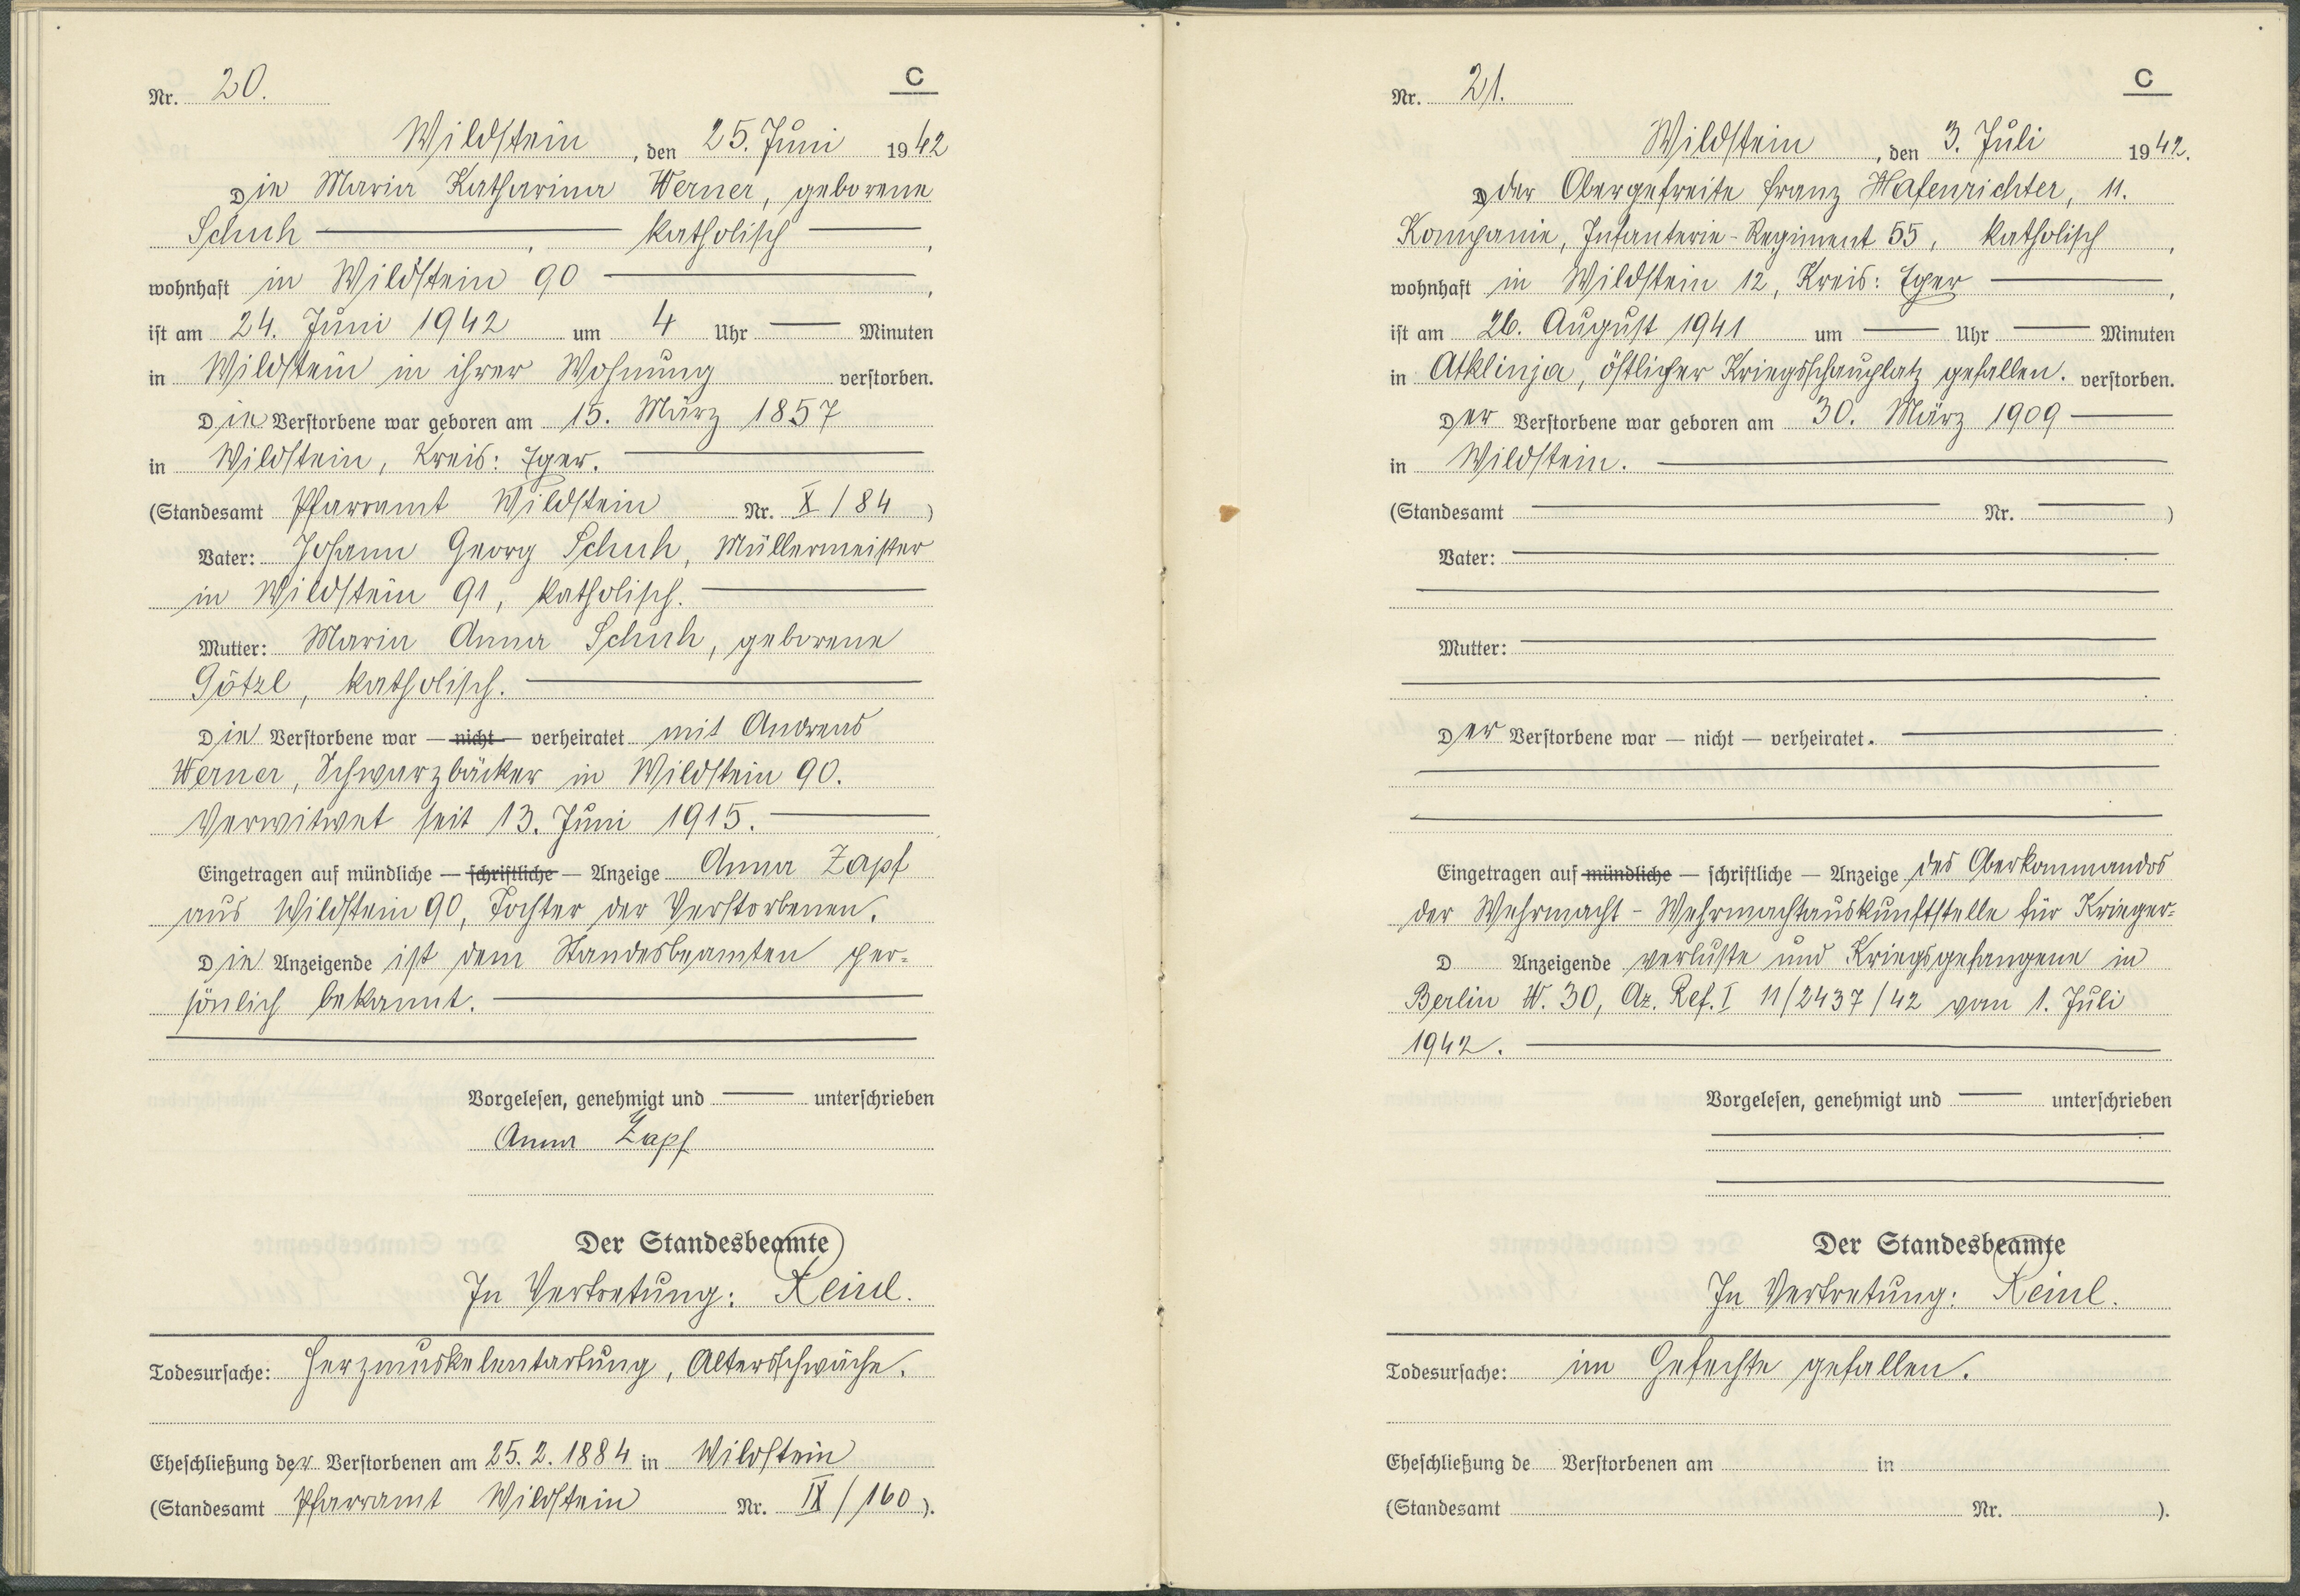 Nr. 20.
C
Wildstein, den 25. Juni 1942
Die Maria Katharina Werner, geborene
Schuh —, — katholisch —,
wohnhaft in Wildstein 90 —,
ist am 24. Juni 1942 um 4 Uhr — Minuten
in Wildstein in ihrer Wohnung verstorben.
Die Verstorbene war geboren am 15. März 1857
in Wildstein, Kreis: Eger. —
(Standesamt Pfarramt Wildstein Nr. X/84)
Vater: Johann Georg Schuh, Müllermeister
in Wildstein 91, katholisch. —
Mutter: Maria Anna Schuh, geborene
Götzl, katholisch. —
Die Verstorbene war — nicht — verheiratet mit Andreas
Werner, Schwarzbäcker in Wildstein 90.
Verwitwet seit 13. Juni 1915. —
Eingetragen auf mündliche — schriftliche — Anzeige Anna Zapf
aus Wildstein 90, Tochter der Verstorbenen.
Die Anzeigende ist dem Standesbeamten per-
sönlich bekannt. —
Vorgelesen, genehmigt und — unterschrieben
Anna Zapf
Der Standesbeamte
In Vertretung: Reinl.
Todesursache: Herzmuskelentartung, Altersschwäche.
Eheschließung der Verstorbenen am 25.2.1884 in Wildstein
(Standesamt Pfarramt Wildstein Nr. IX/160).
Nr. 21.
C
Wildstein, den 3. Juli 1942.
D der Obergefreite Franz Hafenrichter, 11.
Kompanie, Infanterie-Regiment 55, katholisch,
wohnhaft in Wildstein 12, Kreis: Eger —,
ist am 26. August 1941 um — Uhr — Minuten
in Atklinja, östlicher Kriegsschauplatz gefallen. verstorben.
Der Verstorbene war geboren am 30. März 1909 —
in Wildstein. —
(Standesamt — Nr. —)
Vater: —
Mutter: —
Der Verstorbene war — nicht — verheiratet. —
Eingetragen auf mündliche — schriftliche — Anzeige des Oberkommandos
der Wehrmacht - Wehrmachtauskunftstelle für Krieger-
D Anzeigende verluste und Kriegsgefangene in
Berlin W. 30, Az. Ref. I 11/2437/42 vom 1. Juli
1942. —
Vorgelesen, genehmigt und — unterschrieben
Der Standesbeamte
In Vertretung: Reinl.
Todesursache: im Gefechte gefallen.
Eheschließung de Verstorbenen am in
(Standesamt Nr. ).